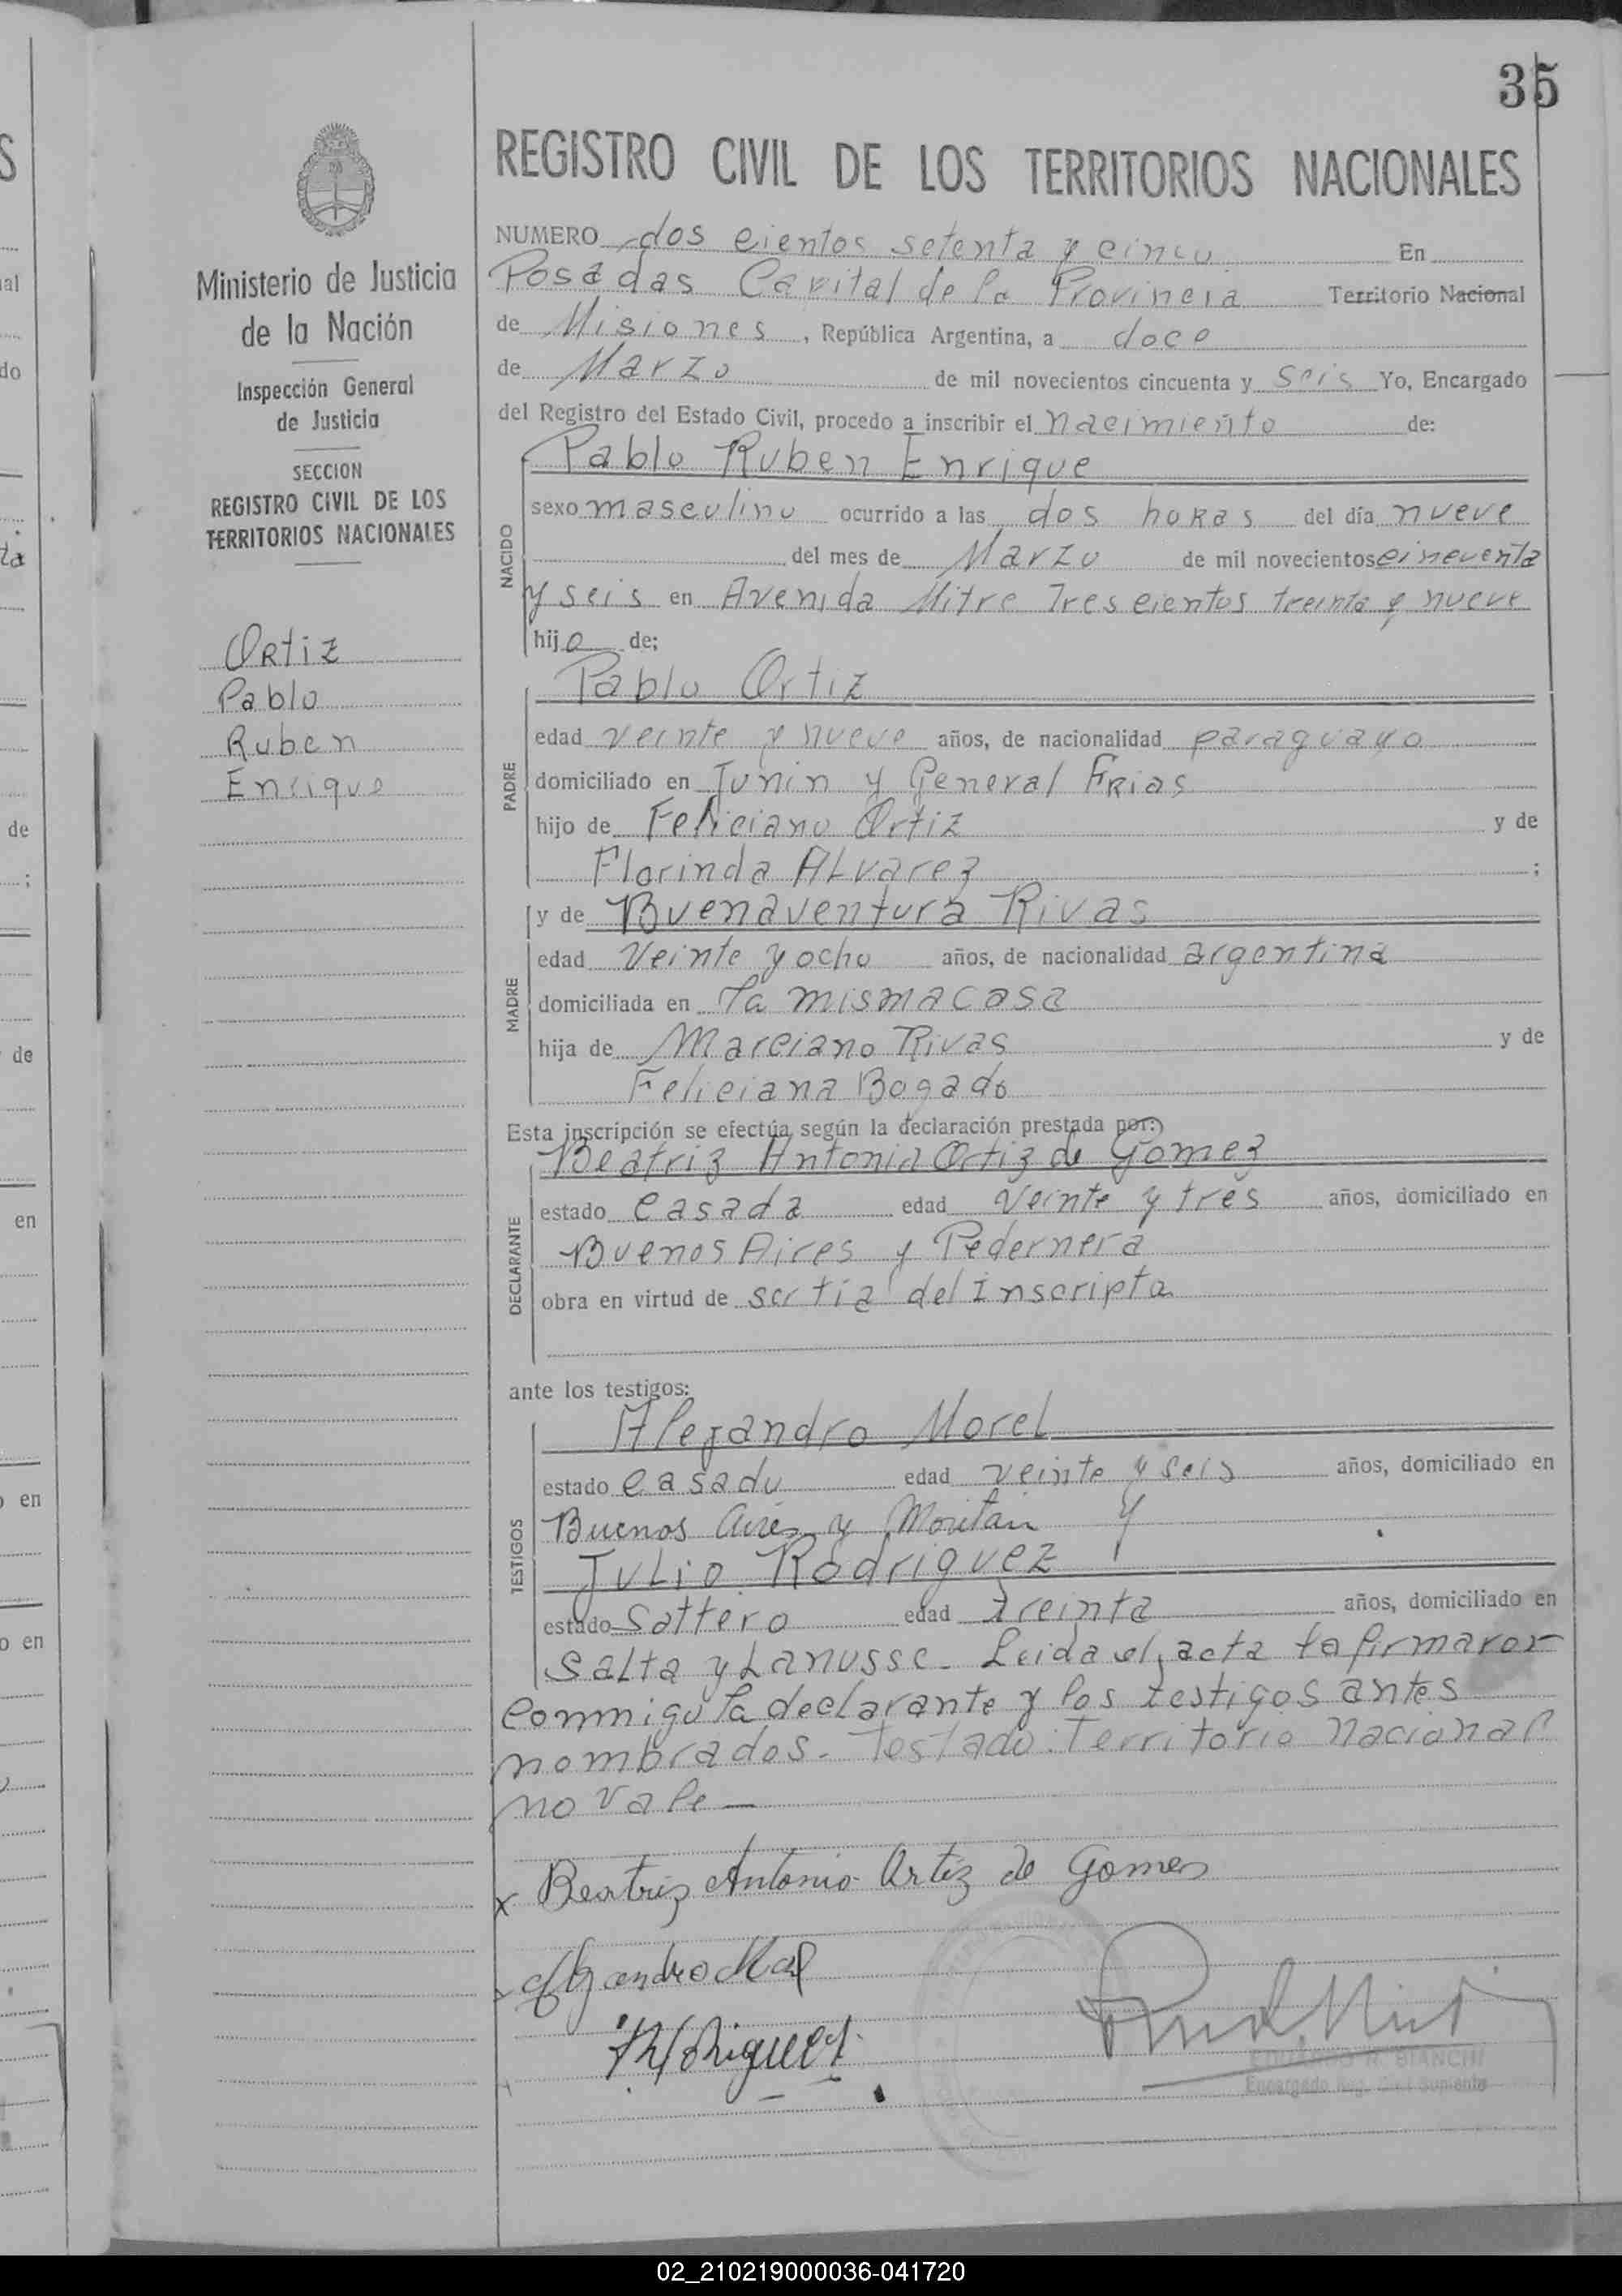 35
REGISTRO CIVIL DE LOS TERRITORIOS NACIONALES
Ministerio de Justicia
de la Nación
Inspección General
de Justicia
SECCION
REGISTRO CIVIL DE LOS
TERRITORIOS NACIONALES
Ortiz
Pablo
Ruben
Enrique
NUMERO dos cientos setenta y cinco En
Posadas Capital de la Provincia Territorio Nacional
de Misiones, República Argentina, a doce
de Marzo de mil novecientos cincuenta y seis Yo, Encargado
del Registro del Estado Civil, procedo a inscribir el nacimiento de:
NACIDO
Pablo Ruben Enrique
sexo masculino ocurrido a las dos horas del día nueve
del mes de Marzo de mil novecientos cincuenta
y seis en Avenida Mitre Trescientos treinta y nueve
hijo de:
PADRE
Pablo Ortiz
edad veinte y nueve años, de nacionalidad paraguayo
domiciliado en Junin y General Frias
hijo de Feliciano Ortiz y de
Florinda Alvarez ;
MADRE
y de Buenaventura Rivas
edad veinte y ocho años, de nacionalidad argentina
domiciliada en la misma casa
hija de Marciano Rivas y de
Feliciana Bogado
Esta inscripción se efectúa según la declaración prestada por:
DECLARANTE
Beatriz Antonia Ortiz de Gomez
estado casada edad veinte y tres años, domiciliado en
Buenos Aires y Pedernera
obra en virtud de ser tia del Inscripto
ante los testigos:
TESTIGOS
Alejandro Morel
estado casado edad veinte y seis años, domiciliado en
Buenos Aires y y
Julio Rodriguez
estado soltero edad treinta años, domiciliado en
Salta y Lanusse. Leida el acta la firmaron
conmigo la declarante y los testigos antes
nombrados. Testado: Territorio Nacional
no vale—
x Beatriz Antonia Ortiz de Gomes
Rodriguez
EDUARDO R. BIANCHI
Encargado Reg. Civil Suplente
02_210219000036-041720